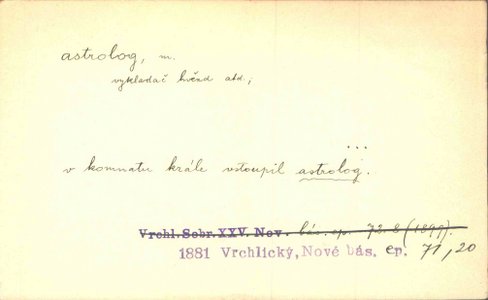 astrolog, m.
vykladač hvězd atd.;
...
v komnatu krále vstoupil astrolog.
Vrchl. Sebr. XXV. Nov. bás. ep. 72.8 (1899).
1881 Vrchlický, Nové bás. ep. 71, 20